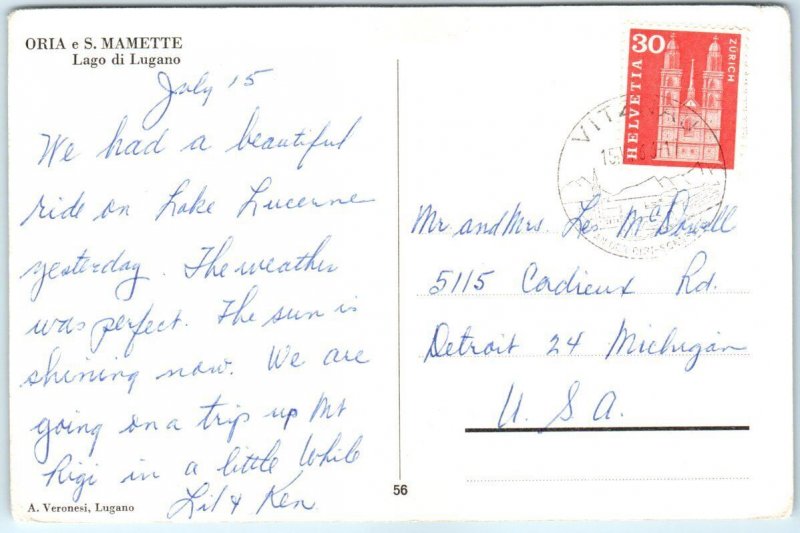 ORIA e S. MAMETTE
Lago di Lugano
July 15
We had a beautiful
ride on Lake Lucerne
yesterday. The weather
was perfect. The sun is
shining now. We are
going on a trip up Mt
Rigi in a little While
Lil & Ken
A. Veronesi, Lugano
56
30
HELVETIA
ZÜRICH
VITZNAU
Mr and Mrs. Les McDowell
5115 Cadieux Rd.
Detroit 24 Michigan
U. S. A.